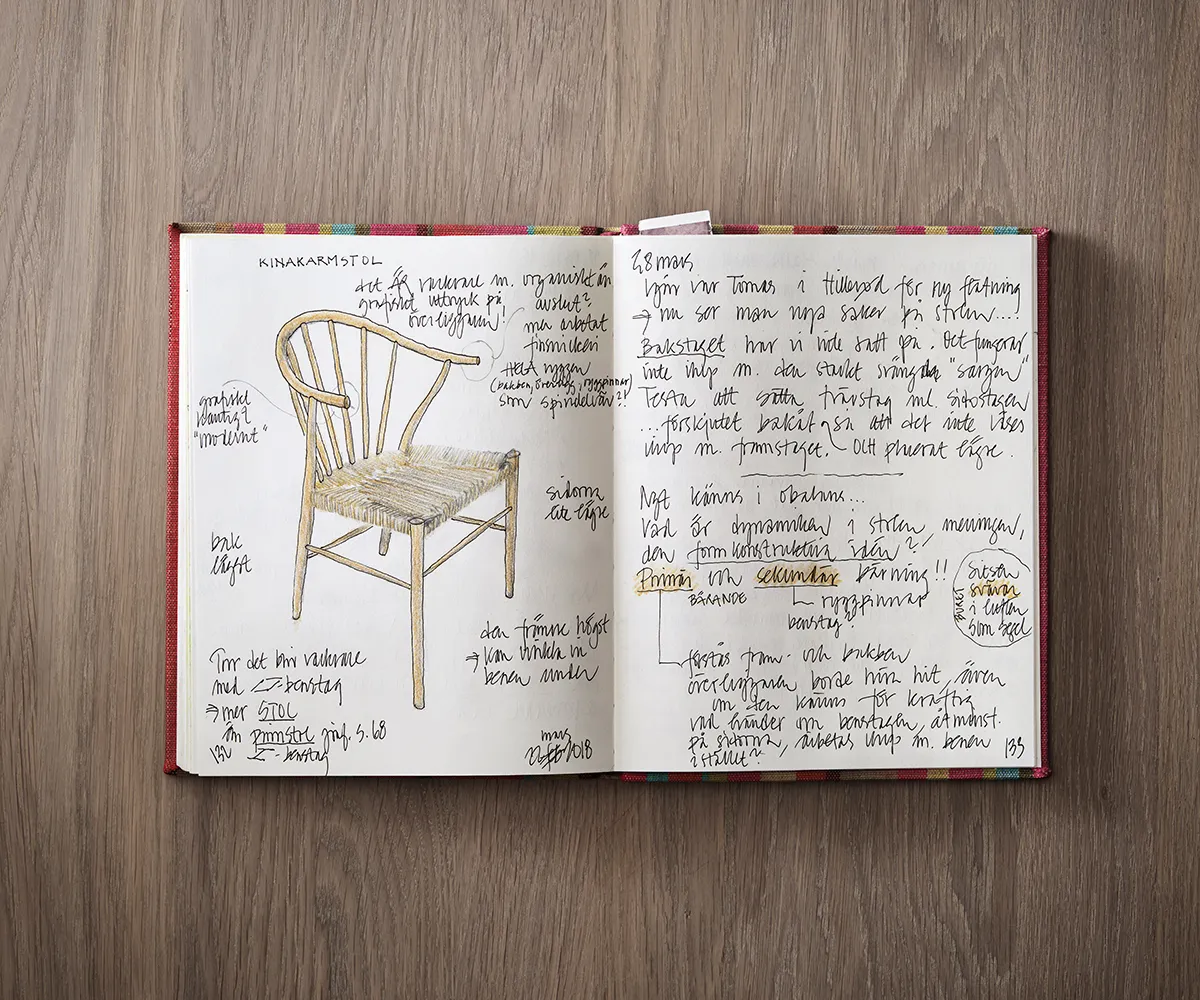 KINAKARMSTOL
det ÄR vackrare m. organiskt än
grafiskt uttryck på
överliggaren!
avslut?
mer arbetat
finsnickeri
HELA ryggen
(bakben, överligg, ryggpinnar)
som spindelväv?!
grafiskt
kantig?
"modernt"
sidorna
lite lägre
bak
lägst
den främre högst
⇒ kan vinkla in
benen under
Tror det blir vackrare
med benstag
⇒ mer STOL
än pinnstol jmf. s. 68
benstag
132
mars
2018
28 mars
Igår var Tomas i Hillerød för ny flätning
⇒ nu ser man nya saker på stolen...!
Bakstaget har vi inte satt på. Det fungerar
inte ihop m. den starkt svängda "sargen"
Testa att sätta tvärstag ml. sidostagen
...förskjutet bakåt så att det inte läses
ihop m. framstaget. OCH placerat lägre.
Ngt känns i obalans...
Vad är dynamiken i stolen, meningen,
den formkonstruktiva idén?
Primär och sekundär bärning!!
BÄRANDE
ryggpinnar
benstag?
BURET
Sitsen
svävar
i luften
som segel
förstås fram- och bakben
överliggaren borde höra hit, även
om den känns för kraftig
vad händer om benstagen, åtminst.
på sidorna, arbetas ihop m. benen
istället?
133